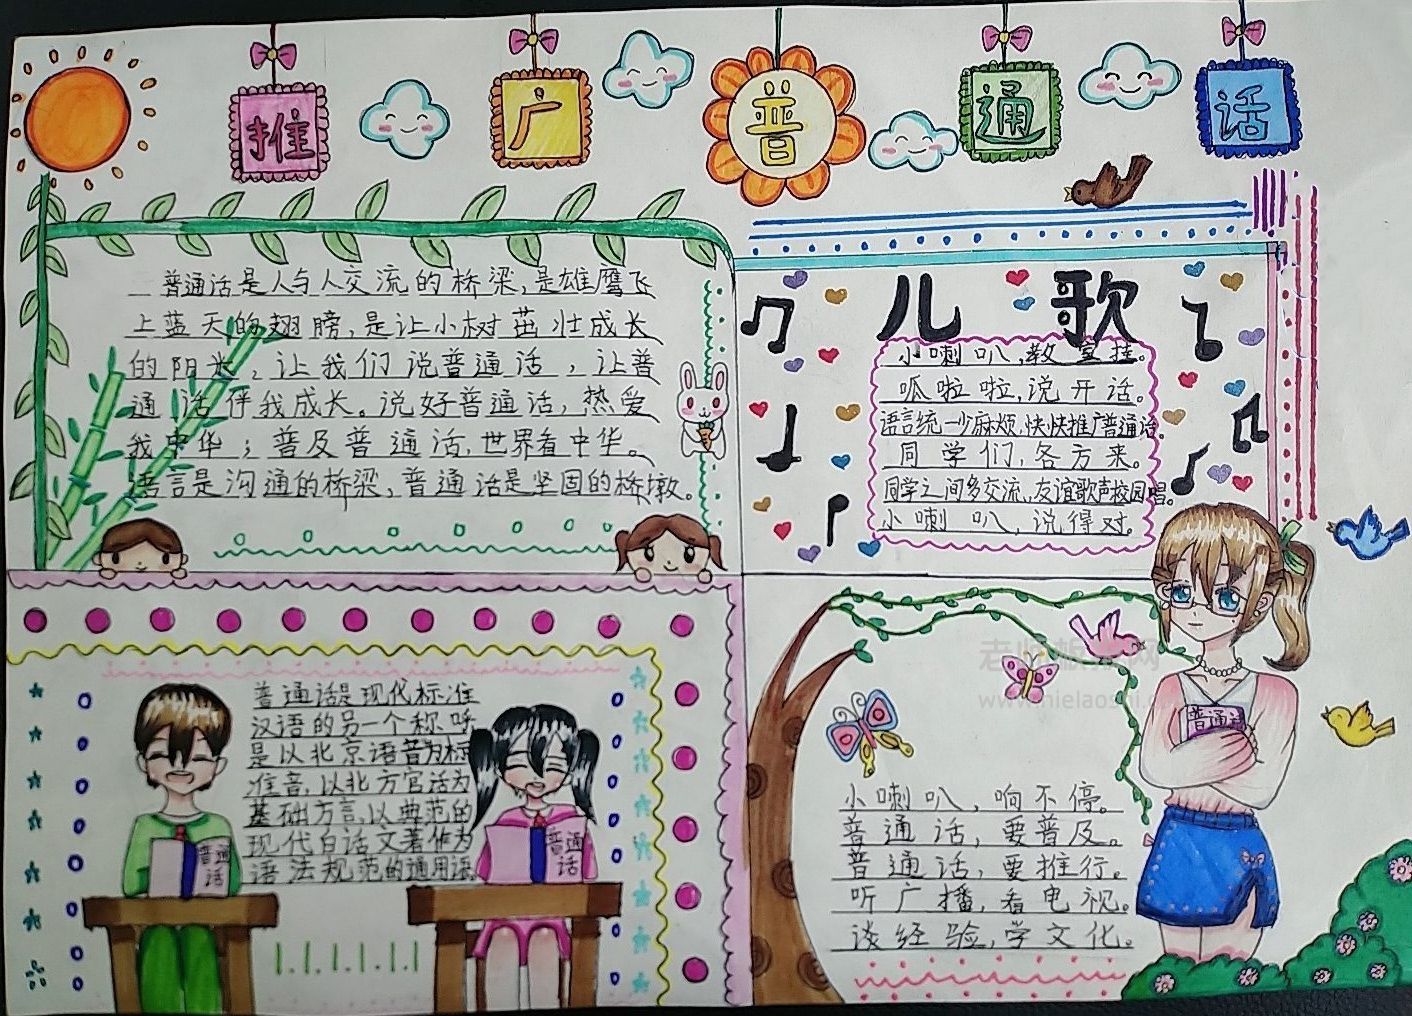 推广普通话
普通话是人与人交流的桥梁,是雄鹰飞
上蓝天的翅膀,是让小树茁壮成长
的阳光,让我们说普通话,让普
通话伴我成长。说好普通话,热爱
我中华;普及普通话,世界看中华。
语言是沟通的桥梁,普通话是坚固的桥墩。
儿歌
小喇叭,教室挂。
呱啦啦,说开话。
语言统一少麻烦,快快推广普通话。
同学们,各方来。
同学之间多交流,友谊歌声校园唱。
小喇叭,说得对。
普通话是现代标准
汉语的另一个称呼
是以北京语音为标
准音,以北方官话为
基础方言,以典范的
现代白话文著作为
语法规范的通用语
普通话
普通话
普通话
小喇叭,响不停。
普通话,要普及。
普通话,要推行。
听广播,看电视。
谈经验,学文化。